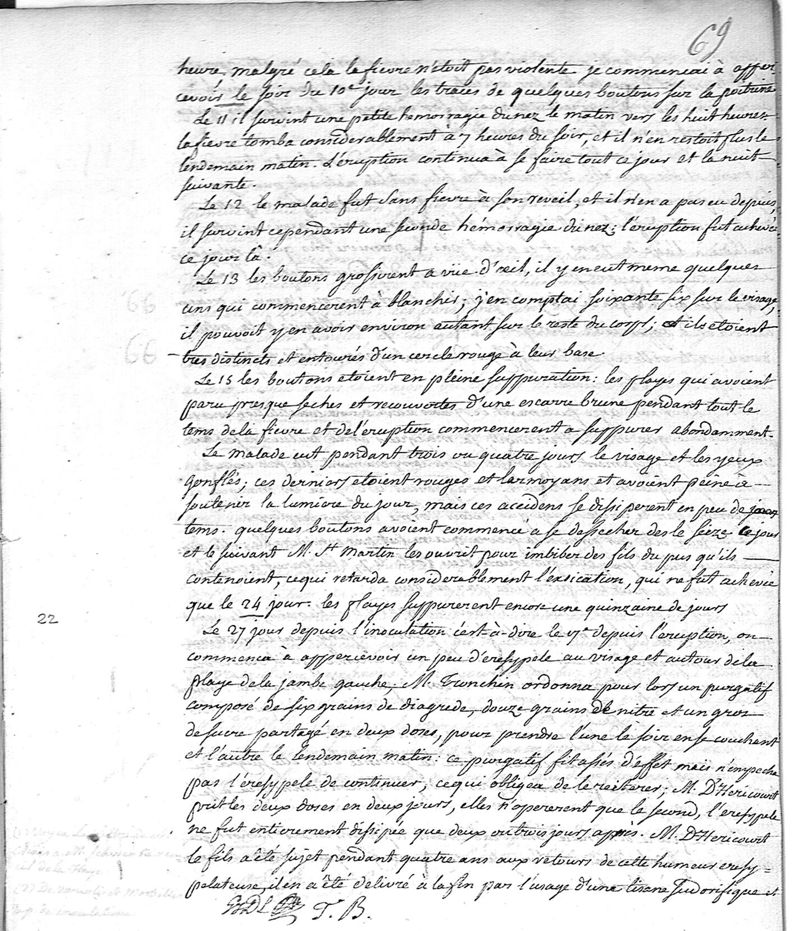 69
heure, malgré cela la fievre n'etoit pas violente je commencai à apper-
cevoir le soir du 10e jour les traces de quelques boutons sur la poitrine
Le 11 il survint une petite hemorragie du nez le matin vers les huit heures
la fievre tomba considerablement a 7 heures du soir, et il n'en restoit plus le
lendemain matin. L'éruption continua à se faire tout ce jour et la nuit
suivante.
Le 12 le malade fut sans fievre à son reveil, et il n'en a pas eu depuis,
il survint cependant une seconde hémorragie du nez; l'éruption fut achevée
ce jour là.
Le 13 les boutons grossirent a vüe d'œil, il y en eut meme quelques
uns qui commencerent à blanchir; j'en comptai soixante six sur le visage,
il pouvoit y en avoir environ autant sur le reste du corps; et ils etoient
tres distincts et entourés d'un cercle rouge à leur base
Le 15 les boutons etoient en pleine suppuration: les playes qui avoient
paru presque seches et recouvertes d'une escarre brune pendant tout le
tems de la fievre et de l'éruption commencerent a suppurer abondamment.
Le malade eut pendant trois ou quatre jours le visage et les yeux
gonflés; ces derniers etoient rouges et larmoyans et avoient peine à
soutenir la lumiere du jour, mais ces accidens se dissiperent en peu de
tems. quelques boutons avoient commencé a se dessecher des le seize. ce jour
et le suivant M. St Martin les ouvrit pour imbiber des fils du pus qu'ils
contenoient, ce qui retarda considerablement l'exsication, qui ne fut achevée
que le 24 jour. les playes suppurerent encore une quinzaine de jours
22
Le 27 jours depuis l'inoculation c'est-à-dire le 17e depuis l'eruption, on
commenca à appercevoir un peu d'eresypele au visage et autour de la
playe de la jambe gauche. M. Tronchin ordonna pour lors un purgatif
composé de six grains de diagrede, douze grains de nitre et un gros
de sucre partagé en deux doses, pour prendre l'une le soir en se couchant
et l'autre le lendemain matin: ce purgatif fit assés d'effet mais n'empecha
pas l'eresypele de continuer, ce qui obligea de le reiterer; M. D'Hericourt
prit les deux doses en deux jours, elles n'opererent que le second, l'eresypele
ne fut entierement dissipée que deux ou trois jours après. M. D'Hericourt
le fils a été sujet pendant quatre ans aux retours de cette humeur eresy-
pelateuse, il en a été delivré à la fin par l'usage d'une tisane sudorifique et
T. B.